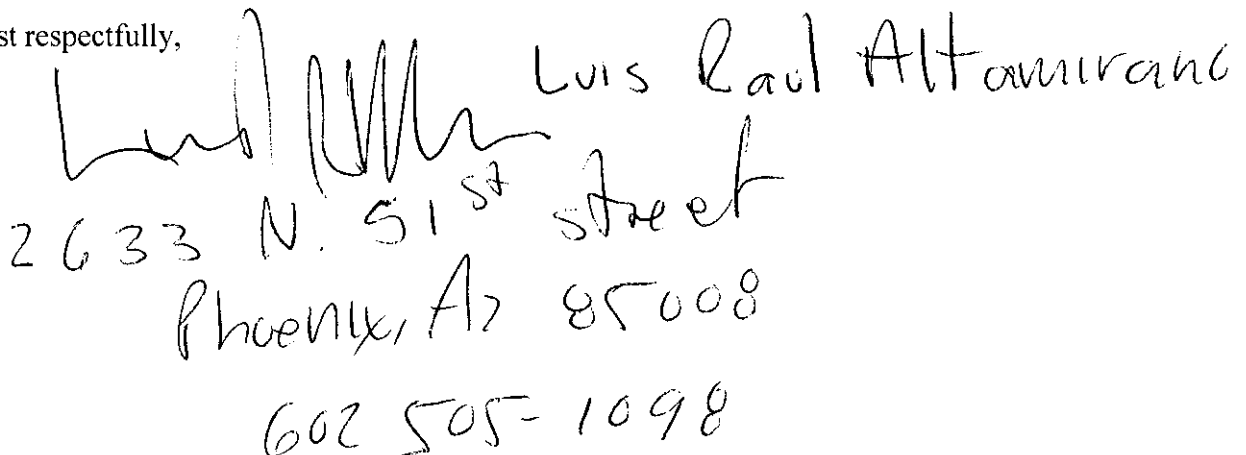 st respectfully,
Luis Raul Altamirano
2633 N. 51st street
Phoenix, Az 85008
602 505-1098